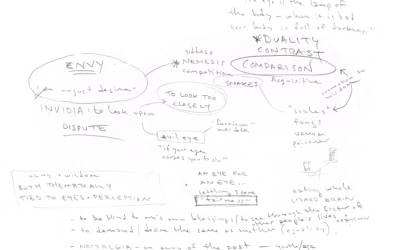 the eye is the lamp of
the body - when it is bad
your body is full of darkness"
*DUALITY
CONTRAST
COMPARISON
ENVY
"an unjust desire"
INVIDIA: to look upon
DISPUTE
*NEMESIS
competition
TO LOOK TOO
CLOSELY
SNAKES
Acquisitive
evil eye
"fascinum"
"if your eye
causes you to sin"
"scales"
fangs
venom
poisoner
envy + wisdom
BOTH THEMATICALLY
TIED TO EYES + PERCEPTION
AN EYE FOR
AN EYE..
settling score
"fairness"
eating whole
LIZARD BRAIN
- to be blind to one's own blessings / to see through the
other people's lives
- to demand / desire the same as another (equality)
- NOSTALGIA - an envy of the past - youth/age